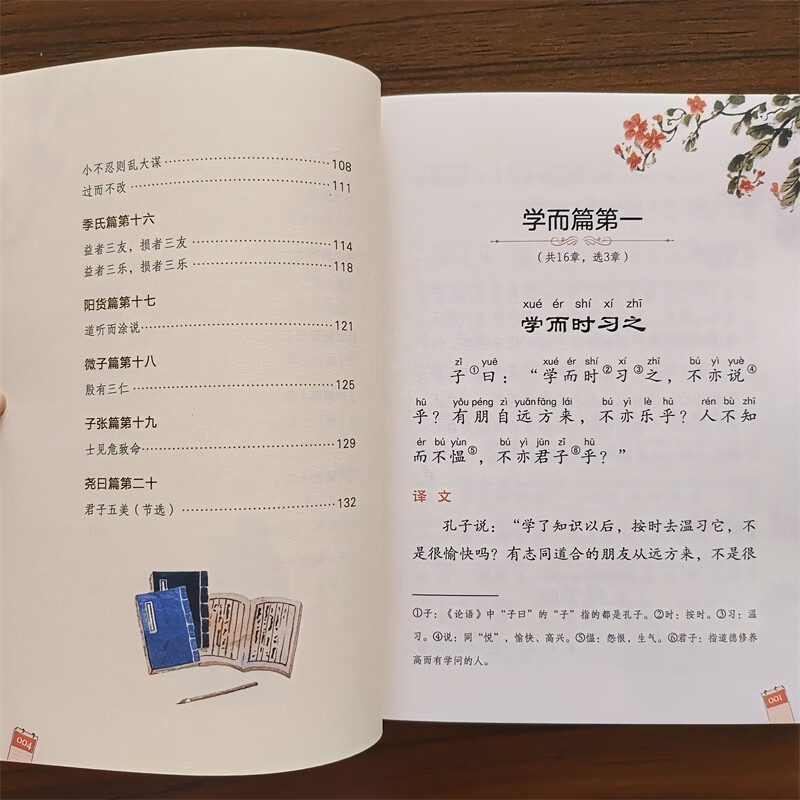 小不忍则乱大谋 108
过而不改 111
季氏篇第十六
益者三友，损者三友 114
益者三乐，损者三乐 118
阳货篇第十七
道听而涂说 121
微子篇第十八
殷有三仁 125
子张篇第十九
士见危致命 129
尧曰篇第二十
君子五美（节选） 132
004
学而篇第一
（共16章，选3章）
xué ér shí xí zhī
学而时习之
zǐ yuē xué ér shí xí zhī bú yì yuè
子①曰：“学而时②习③之，不亦说④
hū yǒu péng zì yuǎn fāng lái bú yì lè hū rén bù zhī
乎？有朋自远方来，不亦乐乎？人不知
ér bú yùn bú yì jūn zǐ hū
而不愠⑤，不亦君子⑥乎？”
译文
孔子说：“学了知识以后，按时去温习它，不
是很愉快吗？有志同道合的朋友从远方来，不是很
①子：《论语》中“子曰”的“子”指的都是孔子。②时：按时。③习：温
习。④说：同“悦”，愉快、高兴。⑤愠：怨恨，生气。⑥君子：指道德修养
高而有学问的人。
001